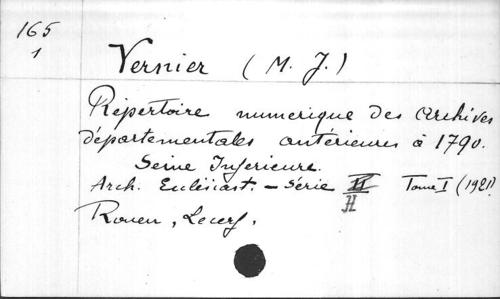 165
1
Vernier (M. J.)
Répertoire numerique des Archives
départementales antérieures à 1790.
Seine Inferieure.
Arch. Ecclésiast. - Série H Tome I (1921)
Rouen, Lecerf.